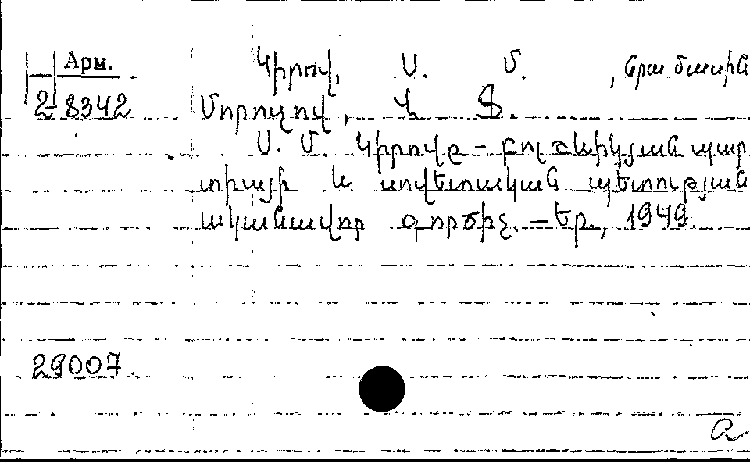 Арм.
Կիրով, Ս. Մ. , նրա մասին
2-8342
Մորոզով, Վ. Ֆ.
Ս. Մ. Կիրովը - բոլշևիկյան պար
տիայի և սովետական պետության
ականավոր գործիչ. - Եր., 1949.
29007
a.